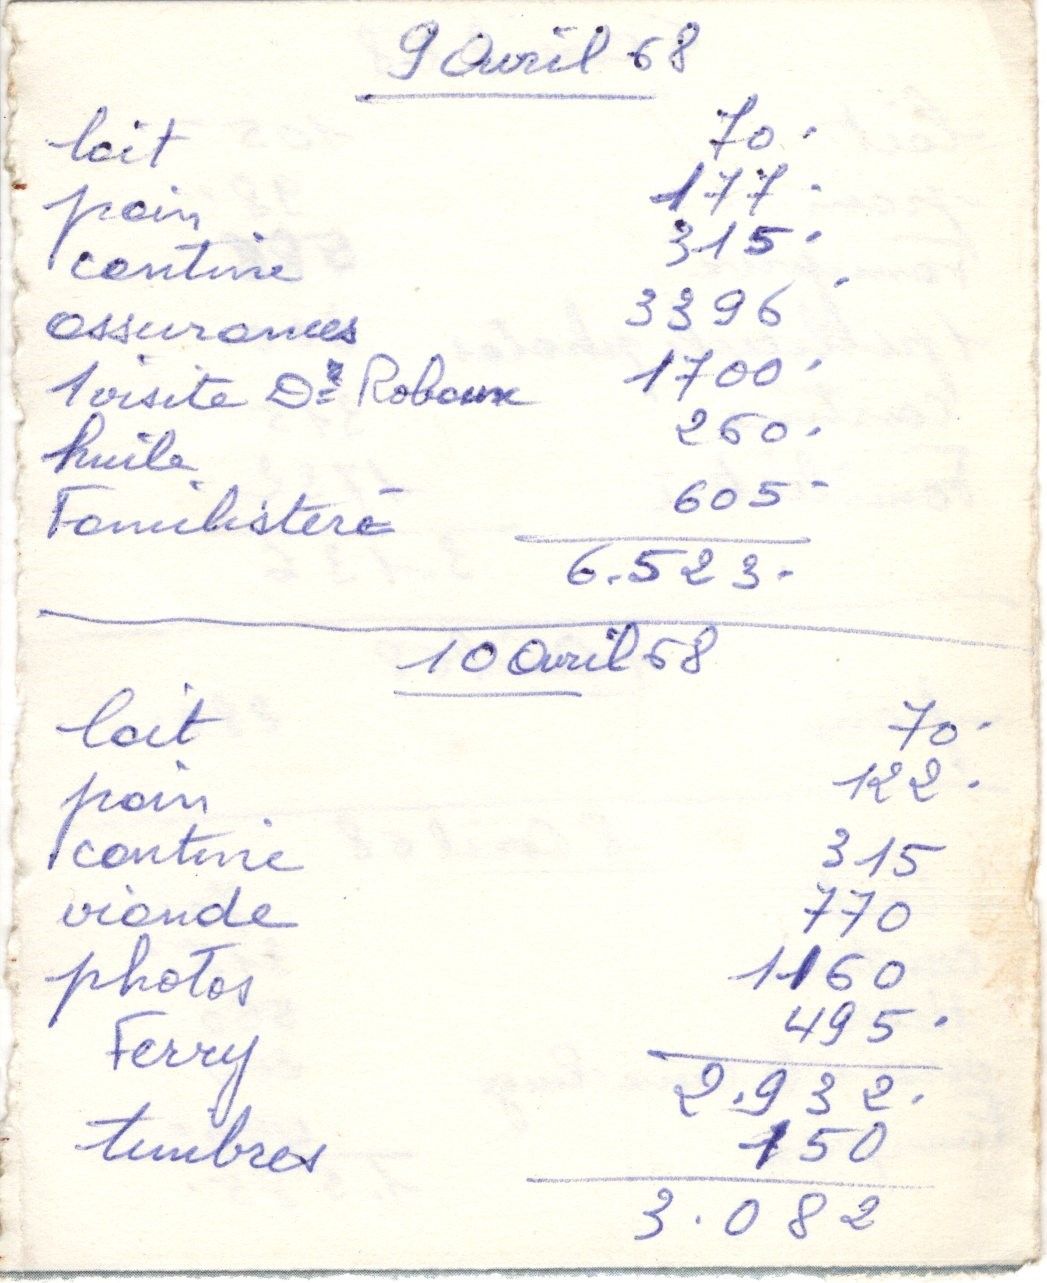 9 Avril 68
lait 70.
pain 177.
cantine 315.
assurances 3396.
1 visite Dr Roboux 1700.
huile 260.
Familistère 605-
6.523.
10 Avril 68
lait 70.
pain 122.
cantine 315
viande 770
photos 1160
Ferry 495.
2.932.
timbres 150
3.082